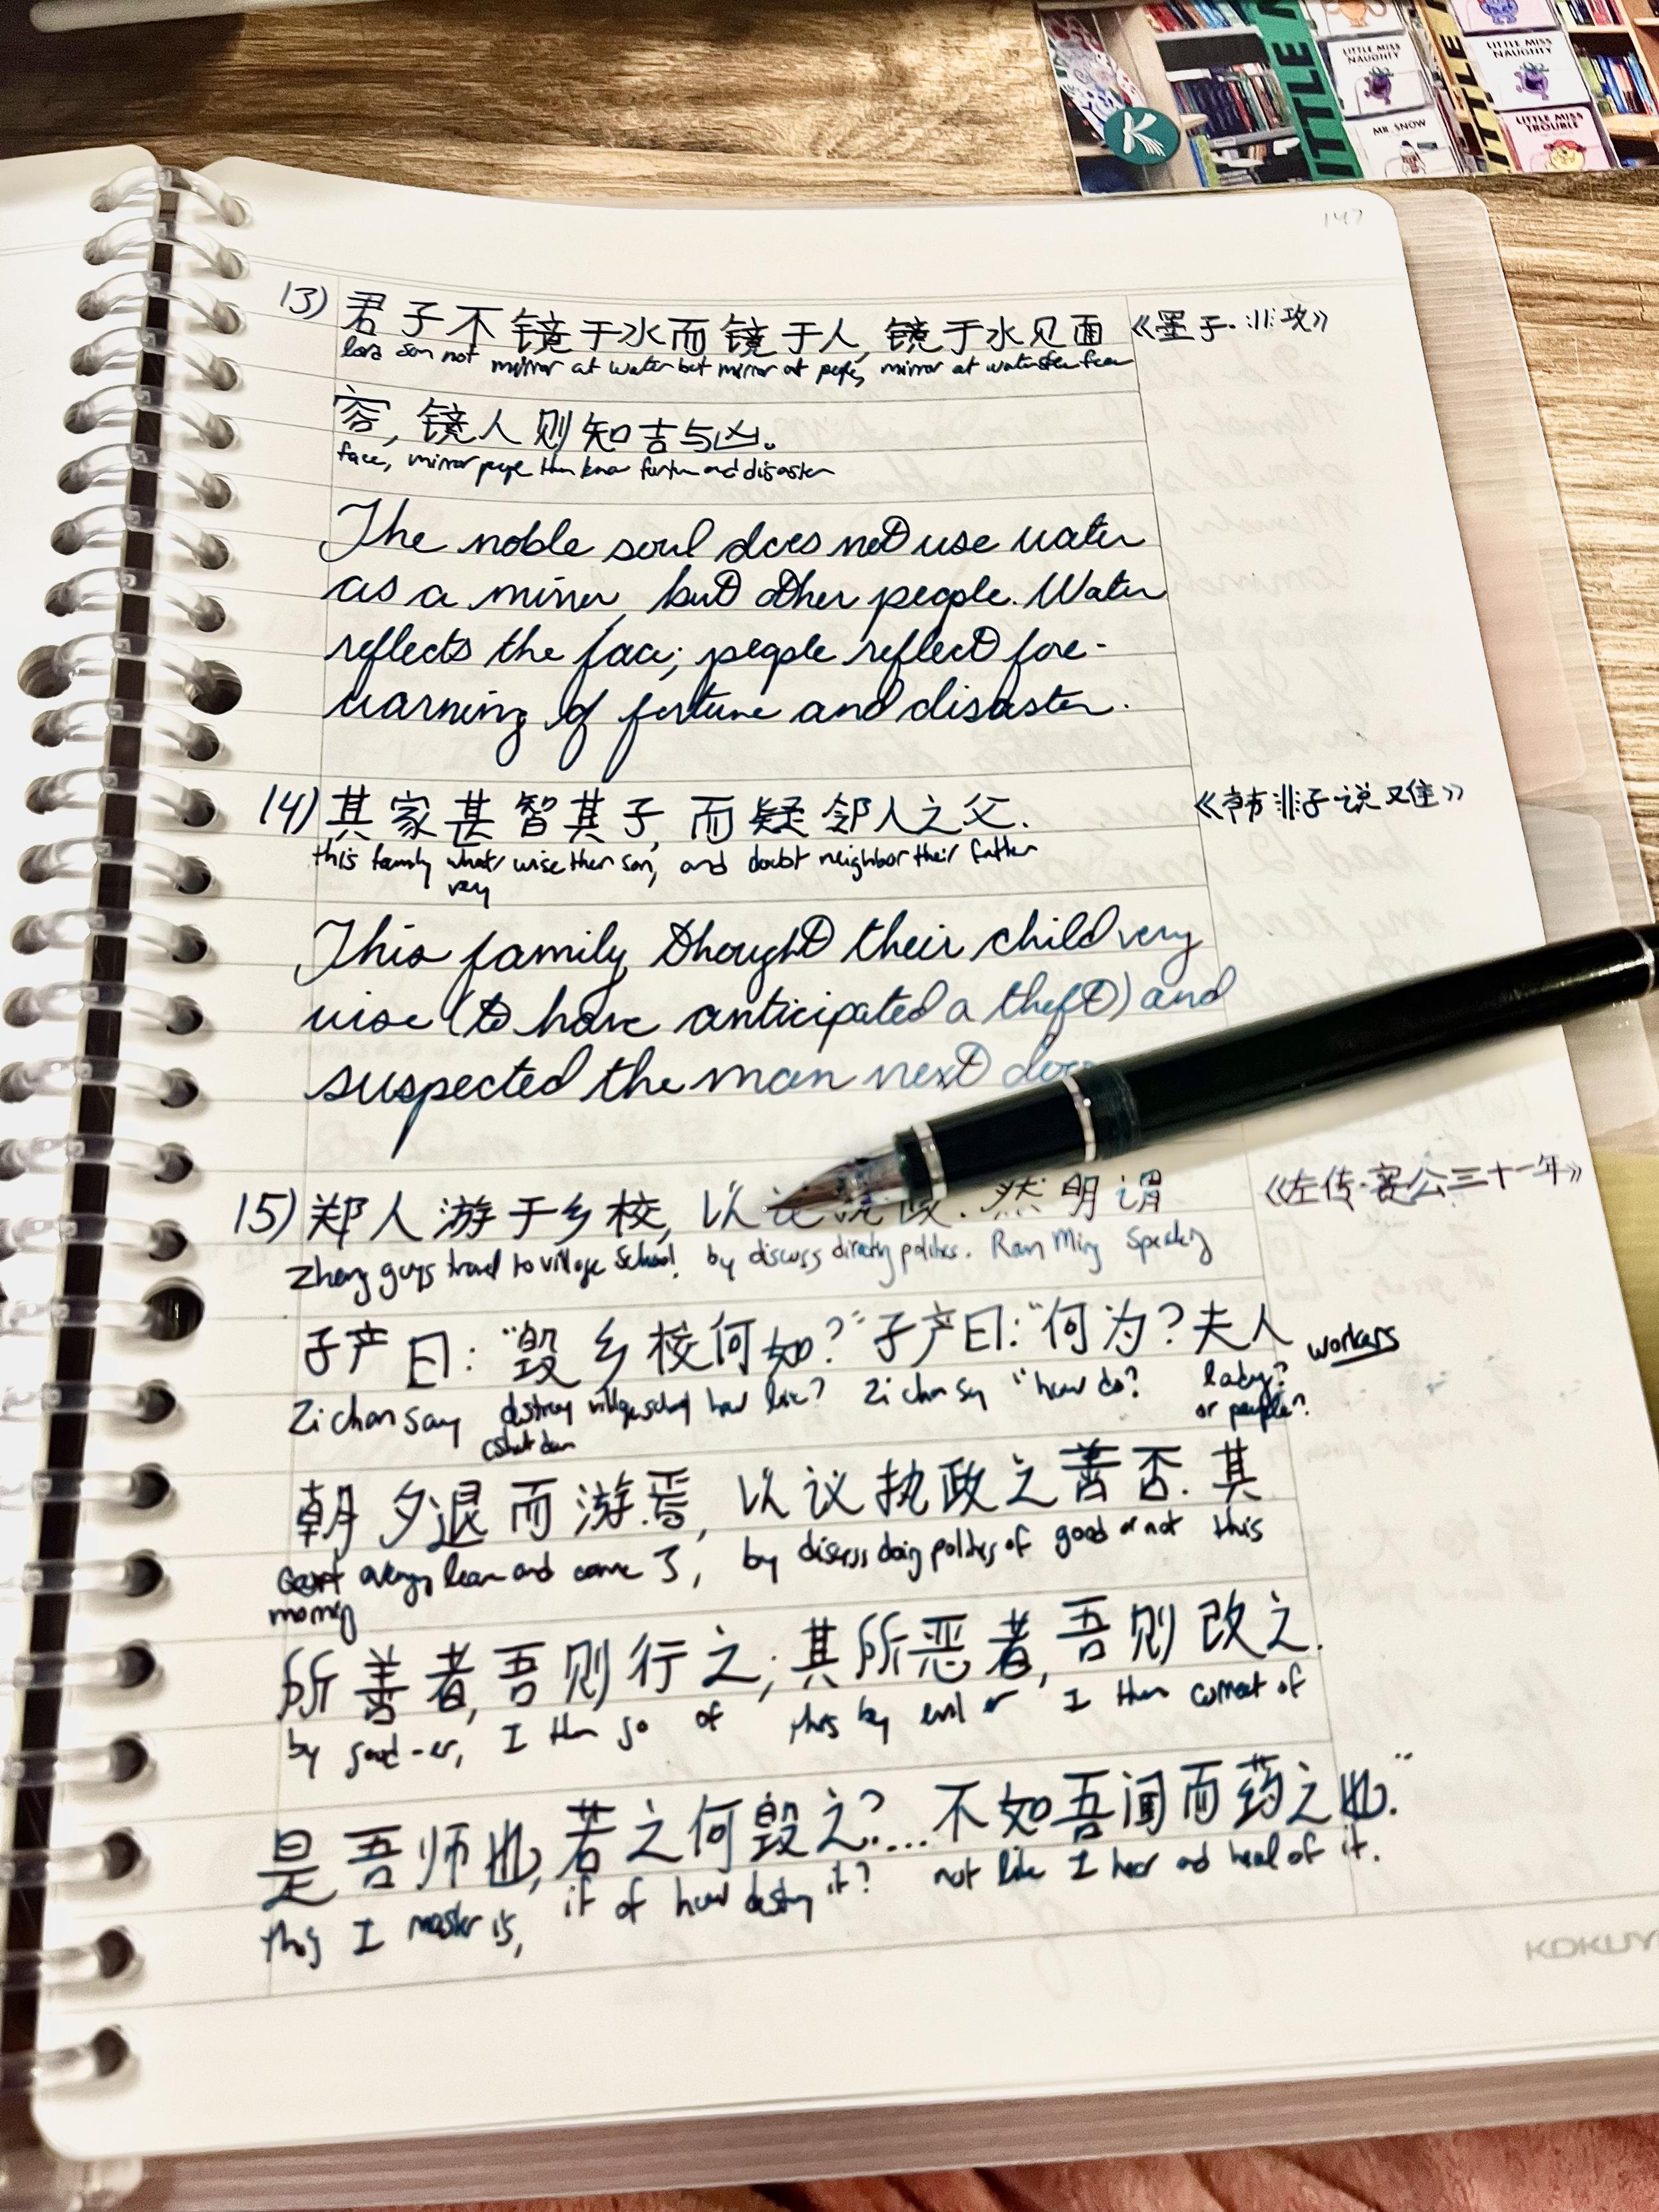 LITTLE MISS NAUGHTY
LITTLE MISS NAUGHTY
MR. SNOW
LITTLE MISS TROUBLE
K
147
13) 君子不镜于水而镜于人, 镜于水见面 《墨子·非攻》
lord son not mirror at water but mirror at people, mirror at water see face
容, 镜人则知吉与凶。
face, mirror people then know fortune and disaster
The noble soul does not use water
as a mirror, but other people. Water
reflects the face; people reflect fore-
warning of fortune and disaster.
14) 其家甚智其子, 而疑邻人之父. 《韩非子·说难》
this family what/ wise their son, and doubt neighbor their father
very
This family thought their child very
wise (to have anticipated a theft) and
suspected the man next door
15) 郑人游于乡校, 以议 政. 然明谓 《左传·襄公三十一年》
Zheng guys travel to village school, by discuss directing politics. Ran Ming speaking
子产曰: "毁乡校何如?" 子产曰: "何为? 夫人
workers
Zi chan say destroy village school how like? Zi chan say "how do? lady?
(shut down or people?
朝夕退而游焉, 以议执政之善否. 其
court evening leave and come 了, by discuss doing politics of good or not this
morning
所善者, 吾则行之; 其所恶者, 吾则改之.
by good-er, I then go of this by evil er I then correct of
是吾师也, 若之何毁之?....不如吾闻而药之也."
this I master is, if of how destroy it? not like I hear and heal of it.
KOKUY